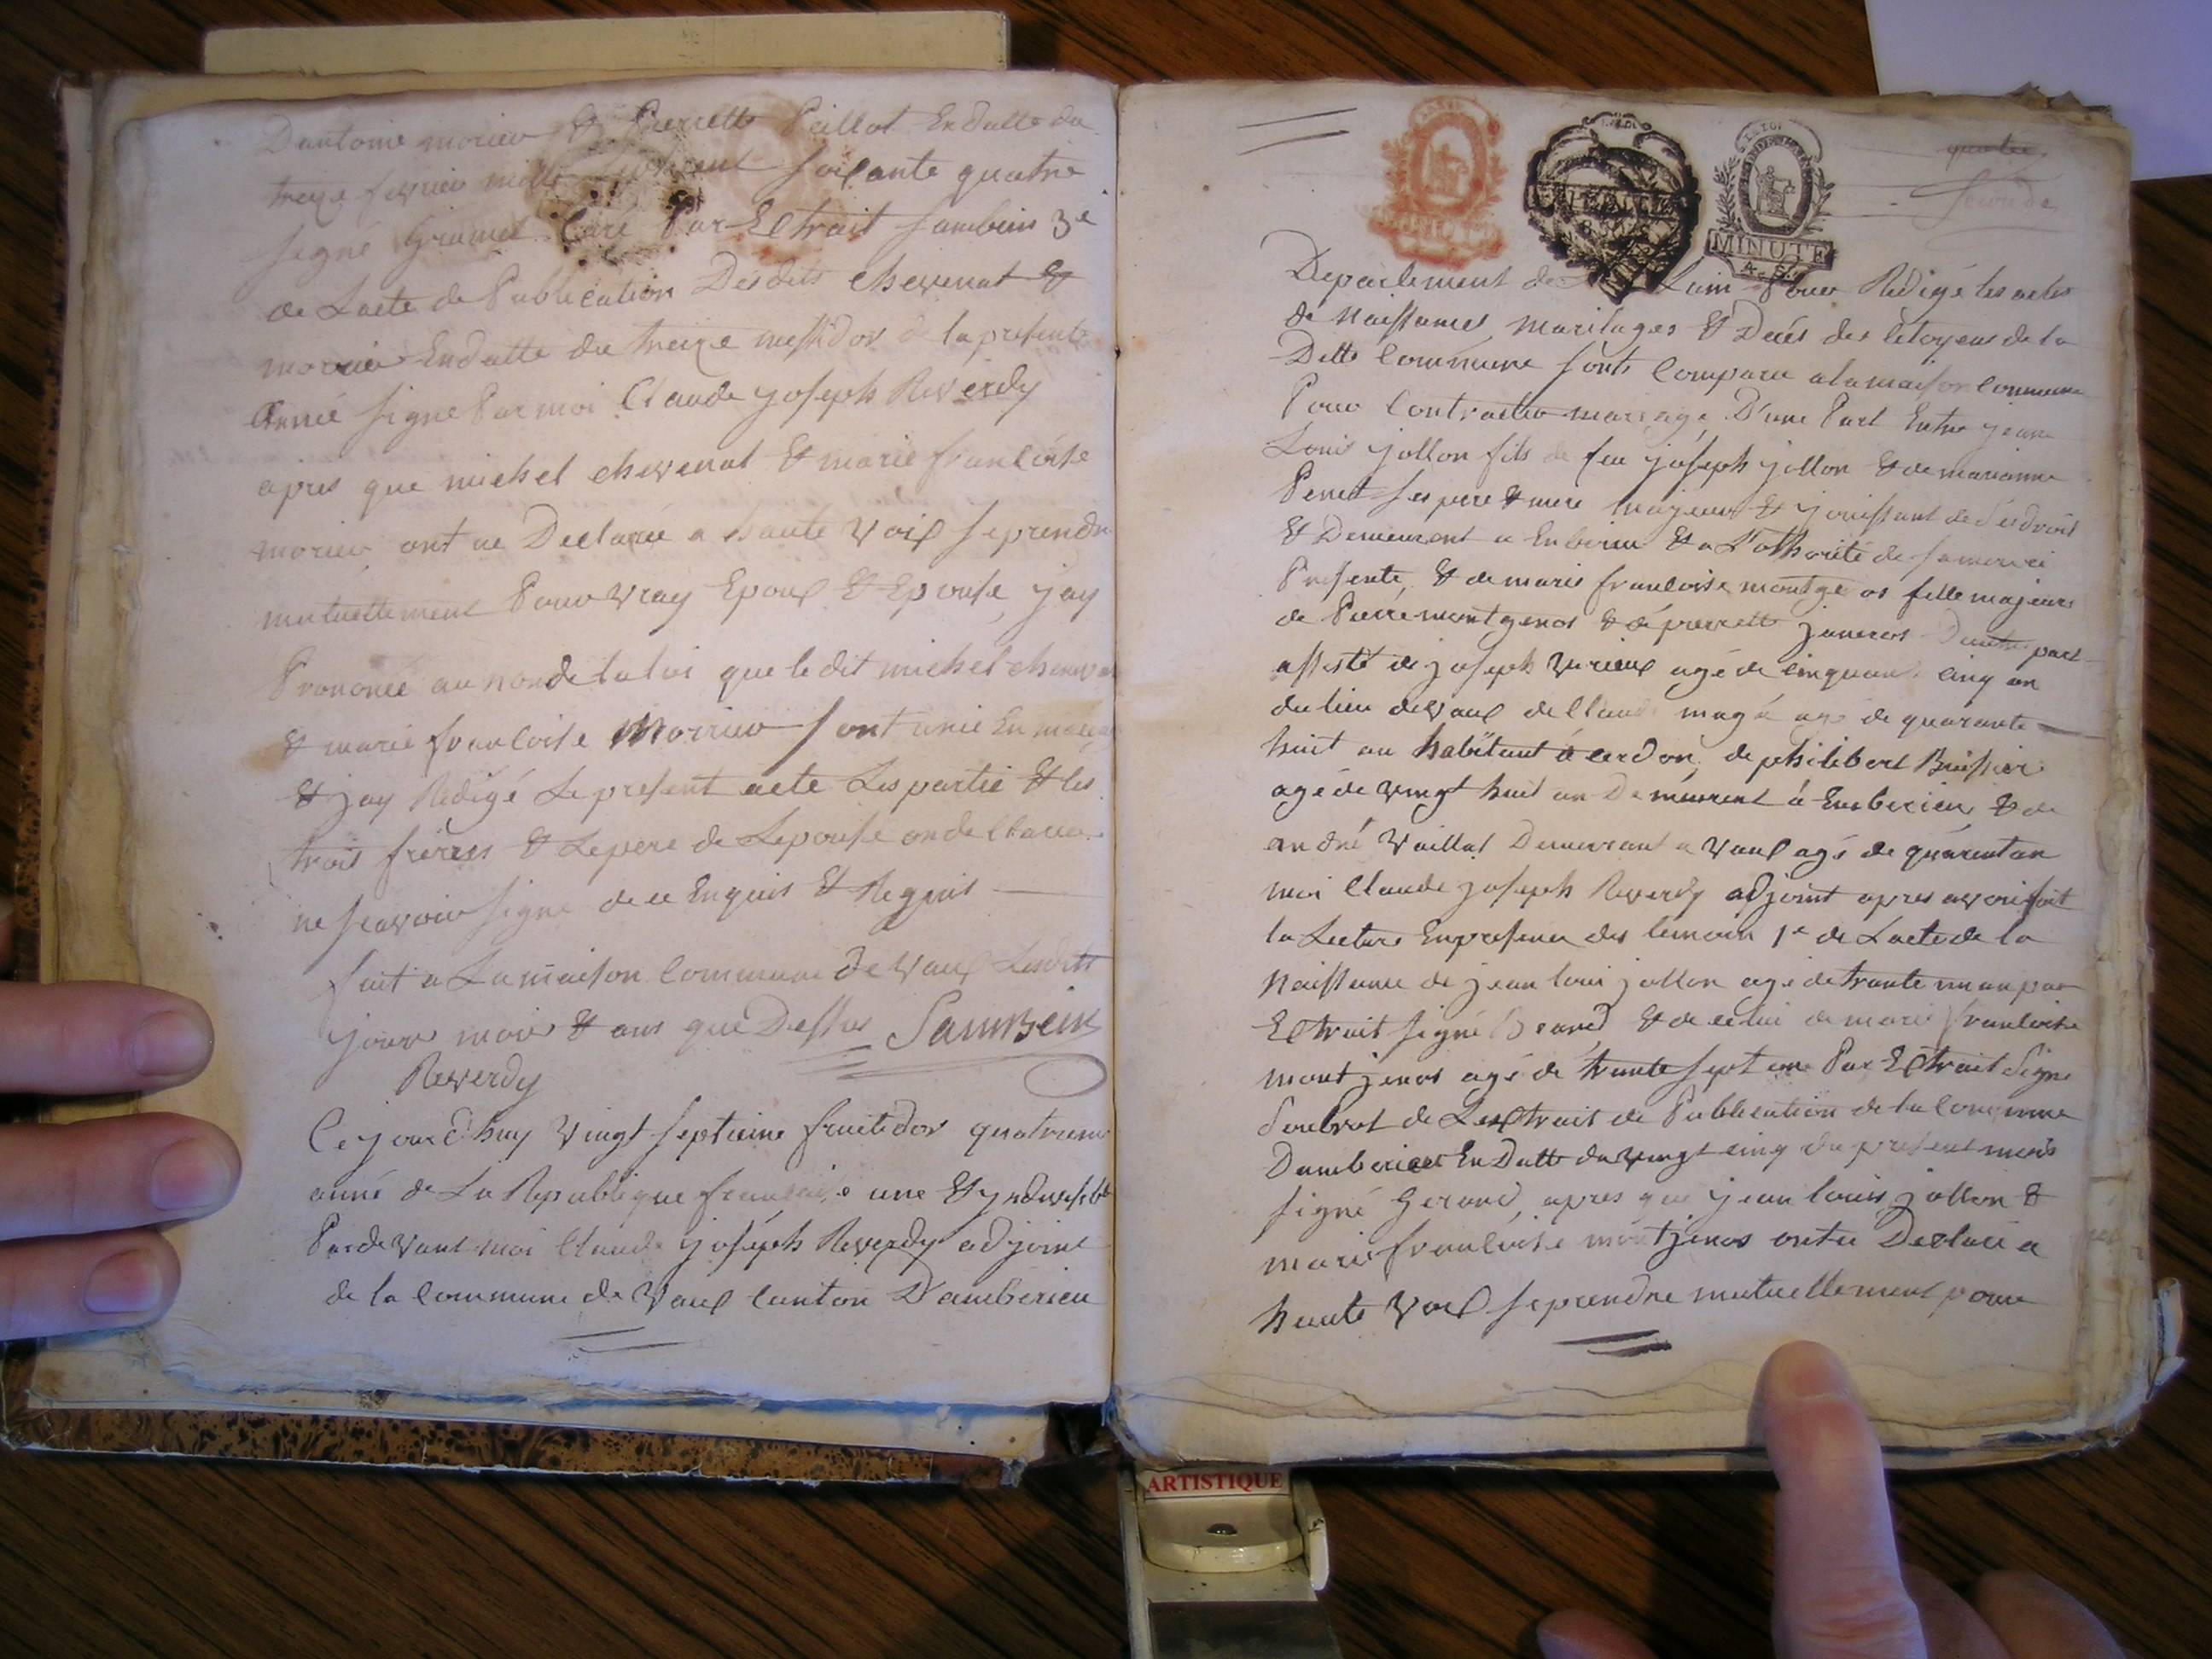 Dantoine morier & Pierrette Paillot En datte du
treize fevrier mille sept cent soixante quatre
signé Curé Par Extrait Sambein 3e
de Lacte de Publication Desdits chevenat &
morier En datte du treize messidor de la presente
année signe Par moi Claude joseph Reverdy
apres que michel chevenat & marie francoise
morier ont ue Declarée a haute voix se prendre
mutuellement Pour vray Epoux & Epouse, jay
Prononcé au nom de la loi que le dit michel chevenat
& marie francoise Morrier sont unie En mariage
& jay Redigé Le present acte Les partie & les
trois freress & Le pere de Lepouse on declarée
ne scavoir signe de ce Enquis & Requis
fait a La maison Commune de vaux Lesdits
jour mois & ans que Dessus Sambein
Reverdy
Ce jourd'huy vingt septieme fruitidor quatrieme
anné de La Republique française une & yndivisible
Pardevant moi Claude joseph Reverdy adjoint
de la Commune de vaux Canton D'amberieu
MINUTE
Departement de Lain Pour Redigé les actes
de Naissances Marilages & Decés des Citoyens de la
Ditte Commune sonts Comparu a la maison Commune
Pour Contracter mariage D'une Part Entre jean
Louis jollon fils de feu joseph jollon & de marianne
Penet ses pere & mere majeur & jouissant de ses droit
& Demeurant a Enberieu & a L'othorité de sa mere ci
Presente, & de marie francoise montgenos fille majeure
de Pierre montgenos & de pierrette janeros Dautre part
assisté de joseph verieux agé de cinquante cinq an
du lieu de vaux de Claude agé de quarante
huit an habitant à cerdon, de philibert Buissier
agé de vingt huit an Demeurent à Emberieu & de
andré Vaillat Demeurant a vaux agé de quarent an
moi Claude joseph Reverdy adjoint apres avoir fait
la Lecture En presence des temoin 1e de Lacte de la
Naissance de jean loui jollon agé de trante un an par
Extrait signé & de celui de marie francoise
montjenos agé de trante sept an Par Extrait Signe
de Lextrait de Publication de la Commune
Damberieu En Datte du vingt cinq du present mois
signé Gerand, apres que jean louis jollon &
marie francoise montjenos ont ue Declaré a
haute voix se prendre mutuellement pour
ARTISTIQUE